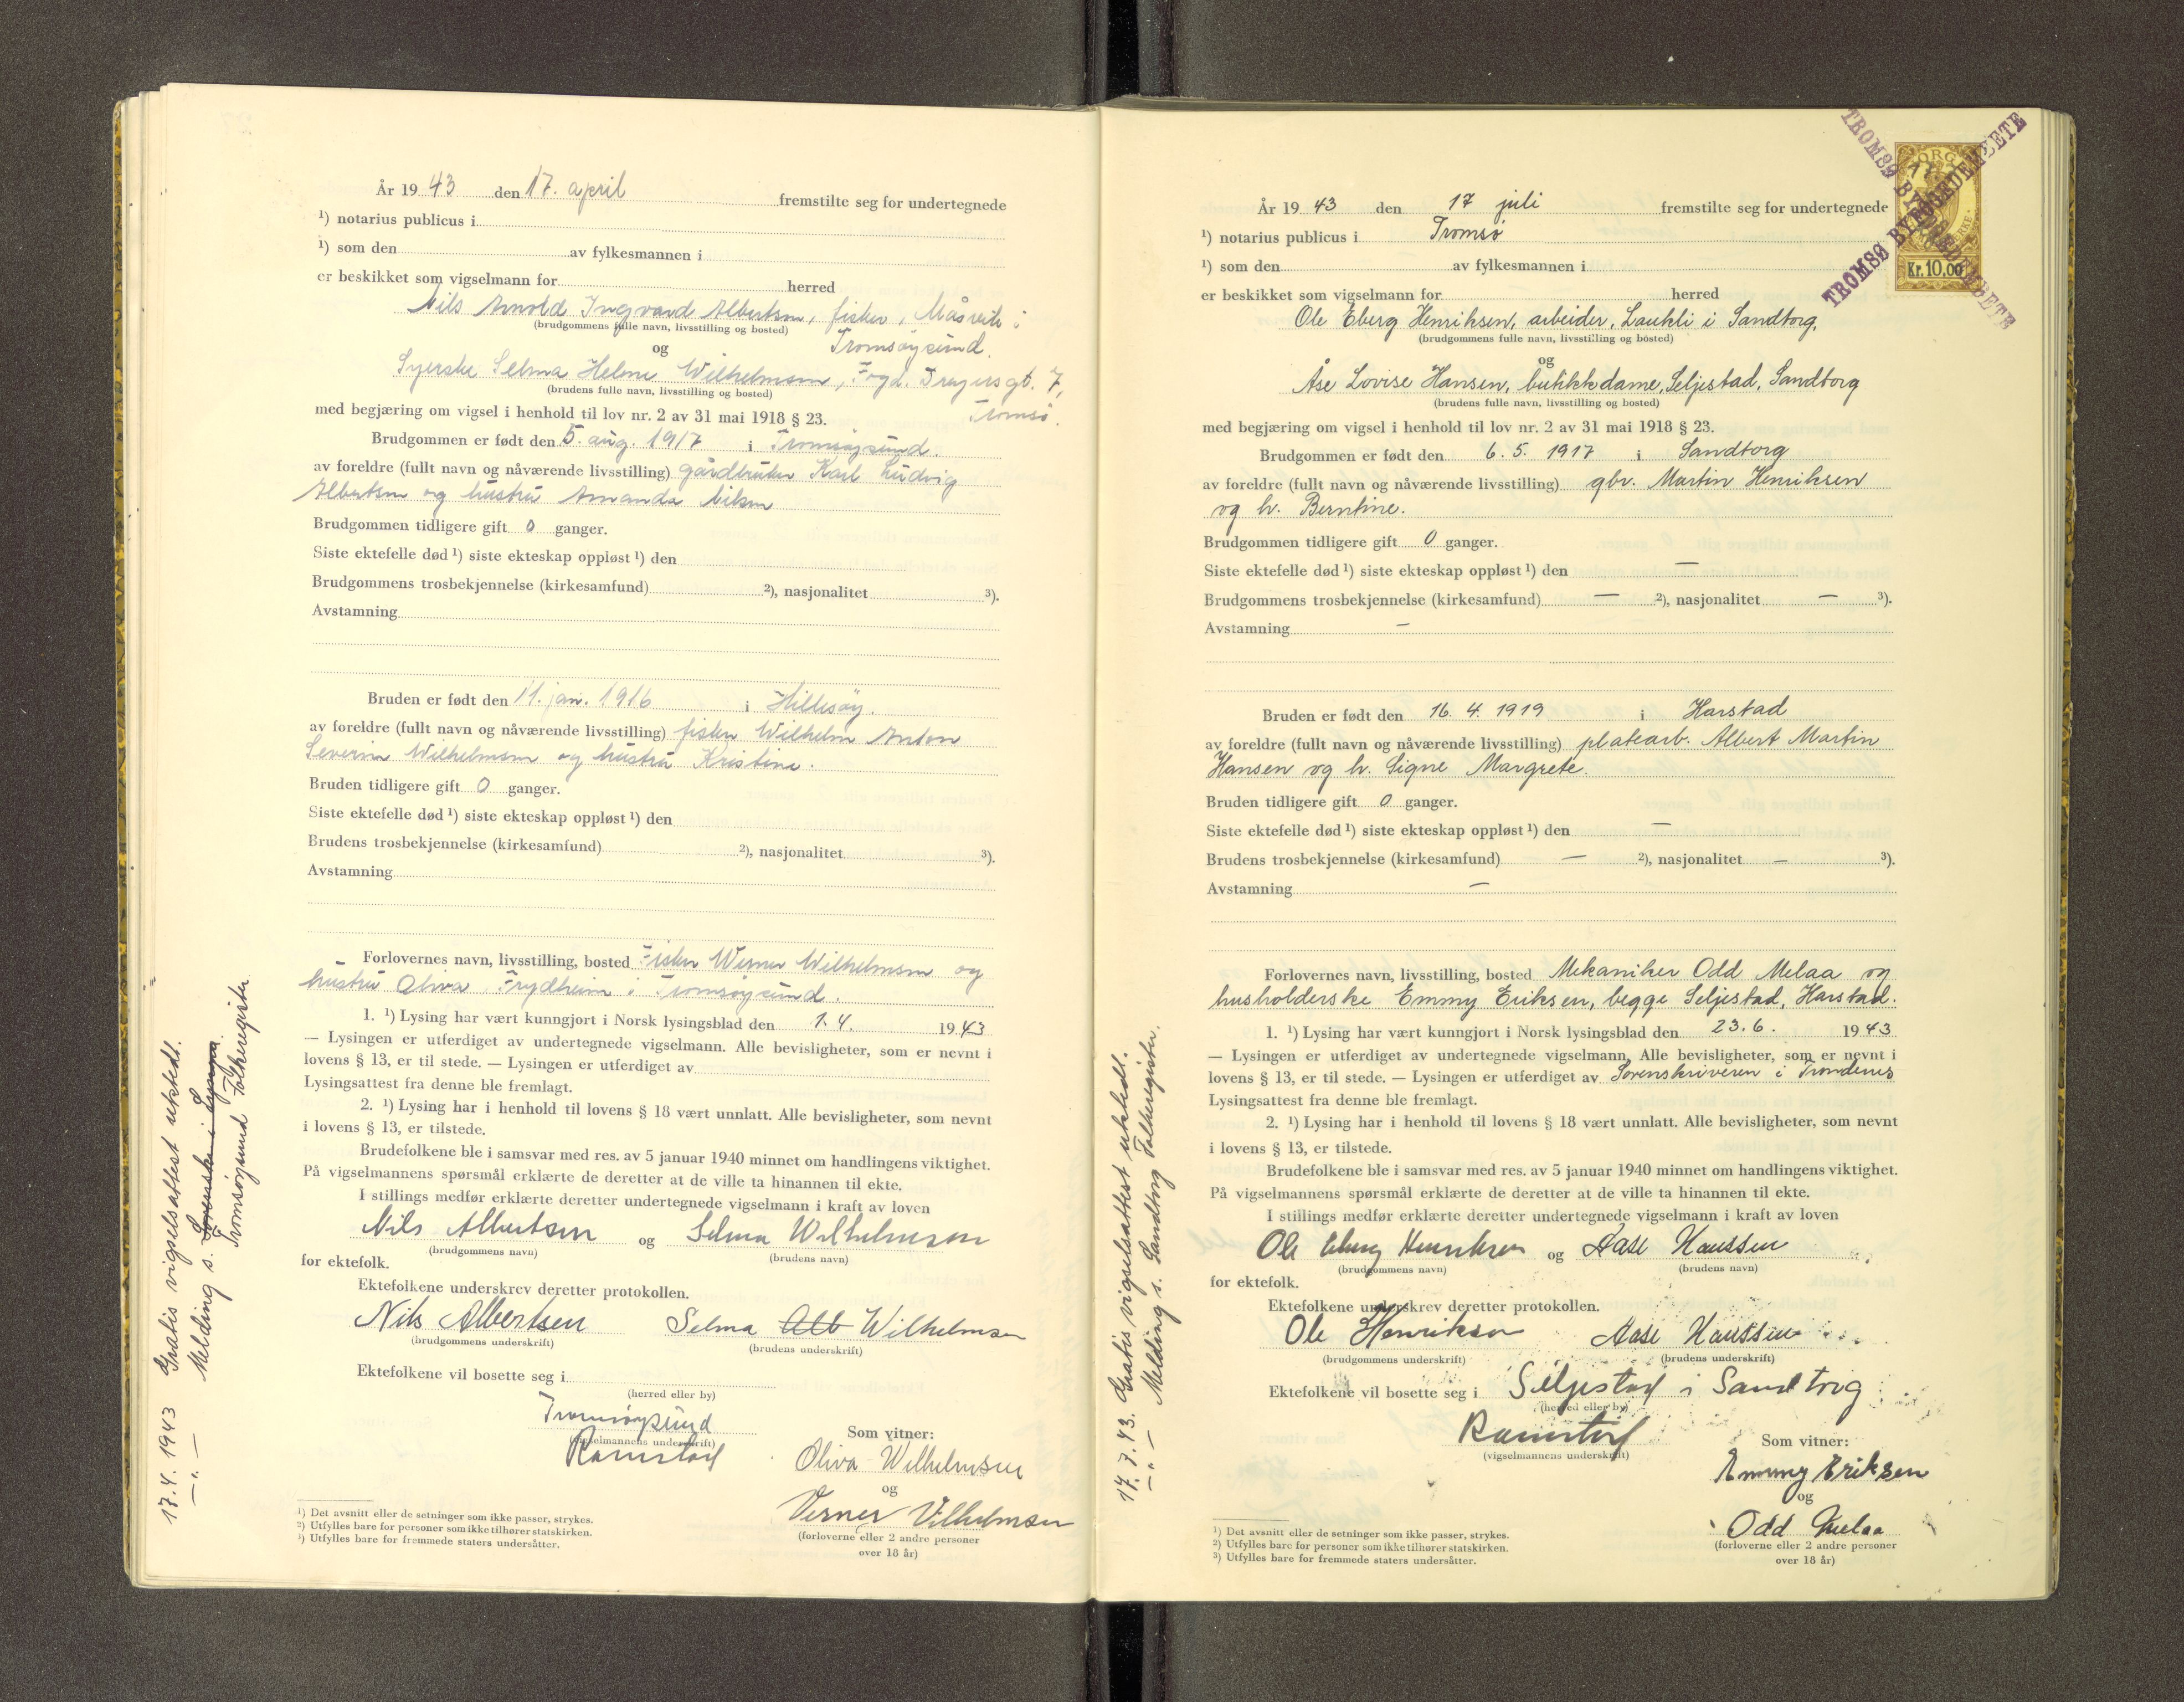 År 1943 den 17. april fremstilte seg for undertegnede
¹) notarius publicus i
¹) som den av fylkesmannen i
er beskikket som vigselmann for herred
Nils Arnold Ingvard Albertsen, fisker, Måsvik i
(brudgommens fulle navn, livsstilling og bosted)
og Tromsøysund.
Syerske Selma Helene Wilhelmsen, Fogd. Dreyersgt. 7,
(brudens fulle navn, livsstilling og bosted)
med begjæring om vigsel i henhold til lov nr. 2 av 31 mai 1918 § 23. Tromsø.
Brudgommen er født den 5. aug. 1917 i Tromsøysund.
av foreldre (fullt navn og nåværende livsstilling) gårdbruker Karl Ludvig
Albertsen og hustru Amanda Nilsen
Brudgommen tidligere gift 0 ganger.
Siste ektefelle død ¹) siste ekteskap oppløst ¹) den
Brudgommens trosbekjennelse (kirkesamfund) ²), nasjonalitet ³).
Avstamning
Bruden er født den 11. jan. 1916 i Hillesøy.
av foreldre (fullt navn og nåværende livsstilling) fisker Wilhelm Anton
Severin Wilhelmsen og hustru Kristine.
Bruden tidligere gift 0 ganger.
Siste ektefelle død ¹) siste ekteskap oppløst ¹) den
Brudens trosbekjennelse (kirkesamfund) ²), nasjonalitet ³).
Avstamning
Forlovernes navn, livsstilling, bosted Fisker Werner Wilhelmsen og
hustru Oliva, Frydheim i Tromsøysund.
1. ¹) Lysing har vært kunngjort i Norsk lysingsblad den 1. 4. 1943
— Lysingen er utferdiget av undertegnede vigselmann. Alle bevisligheter, som er nevnt i
lovens § 13, er til stede. — Lysingen er utferdiget av
Lysingsattest fra denne ble fremlagt.
2. ¹) Lysing har i henhold til lovens § 18 vært unnlatt. Alle bevisligheter, som nevnt
i lovens § 13, er tilstede.
Brudefolkene ble i samsvar med res. av 5 januar 1940 minnet om handlingens viktighet.
På vigselmannens spørsmål erklærte de deretter at de ville ta hinannen til ekte.
I stillings medfør erklærte deretter undertegnede vigselmann i kraft av loven
Nils Albertsen og Selma Wilhelmsen
(brudgommens navn) (brudens navn)
for ektefolk.
Ektefolkene underskrev deretter protokollen.
Nils Albertsen Selma Alb Wilhelmsen
(brudgommens underskrift) (brudens underskrift)
Ektefolkene vil bosette seg i
(herred eller by)
Tromsøysund
(vigselmannens underskrift)
Som vitner:
Oliva Wilhelmsen
og
Verner Vilhelmsen
(forloverne eller 2 andre personer
over 18 år)
¹) Det avsnitt eller de setninger som ikke passer, strykes.
²) Utfylles bare for personer som ikke tilhører statskirken.
³) Utfylles bare for fremmede staters undersåtter.
17.4. 1943 Gratis vigselsattest utstedt.
—„— Melding s. Sorenskr. i Lyngen
Tromsøysund Folkeregister
År 1943 den 17 juli fremstilte seg for undertegnede
¹) notarius publicus i Tromsø
¹) som den av fylkesmannen i
er beskikket som vigselmann for herred
Ole Eberg Henriksen, arbeider, Laukli i Sandtorg,
(brudgommens fulle navn, livsstilling og bosted)
og
Åse Lovise Hansen, butikkdame, Seljestad, Sandtorg
(brudens fulle navn, livsstilling og bosted)
med begjæring om vigsel i henhold til lov nr. 2 av 31 mai 1918 § 23.
Brudgommen er født den 6. 5. 1917 i Sandtorg
av foreldre (fullt navn og nåværende livsstilling) gbr. Martin Henriksen
og h. Berntine.
Brudgommen tidligere gift 0 ganger.
Siste ektefelle død ¹) siste ekteskap oppløst ¹) den —
Brudgommens trosbekjennelse (kirkesamfund) — ²), nasjonalitet — ³).
Avstamning —
Bruden er født den 16. 4. 1919 i Harstad
av foreldre (fullt navn og nåværende livsstilling) platearb. Albert Martin
Hansen og h. Signe Margrete.
Bruden tidligere gift 0 ganger.
Siste ektefelle død ¹) siste ekteskap oppløst ¹) den —
Brudens trosbekjennelse (kirkesamfund) — ²), nasjonalitet — ³).
Avstamning —
Forlovernes navn, livsstilling, bosted Mekaniker Odd Melaa og
husholderske Emmy Eriksen, begge Seljestad, Harstad.
1. ¹) Lysing har vært kunngjort i Norsk lysingsblad den 23. 6. 1943
— Lysingen er utferdiget av undertegnede vigselmann. Alle bevisligheter, som er nevnt i
lovens § 13, er til stede. — Lysingen er utferdiget av Sorenskriveren i Trondenes
Lysingsattest fra denne ble fremlagt.
2. ¹) Lysing har i henhold til lovens § 18 vært unnlatt. Alle bevisligheter, som nevnt
i lovens § 13, er tilstede.
Brudefolkene ble i samsvar med res. av 5 januar 1940 minnet om handlingens viktighet.
På vigselmannens spørsmål erklærte de deretter at de ville ta hinannen til ekte.
I stillings medfør erklærte deretter undertegnede vigselmann i kraft av loven
Ole Eberg Henriksen og Aase Hanssen
(brudgommens navn) (brudens navn)
for ektefolk.
Ektefolkene underskrev deretter protokollen.
Ole Henriksen Aase Hanssen
(brudgommens underskrift) (brudens underskrift)
Ektefolkene vil bosette seg i Seljestad i Sandtorg
(herred eller by)
(vigselmannens underskrift)
Som vitner:
Emmy Eriksen
og
Odd Melaa
(forloverne eller 2 andre personer
over 18 år)
¹) Det avsnitt eller de setninger som ikke passer, strykes.
²) Utfylles bare for personer som ikke tilhører statskirken.
³) Utfylles bare for fremmede staters undersåtter.
17.7.43. Gratis vigselsattest utstedt.
—„— Melding s. Sandtorg Folkeregister.
TROMSØ BYFOGEDEMBETE
TROMSØ BYFOGEDEMBETE
NORGE
Kr. 10.00